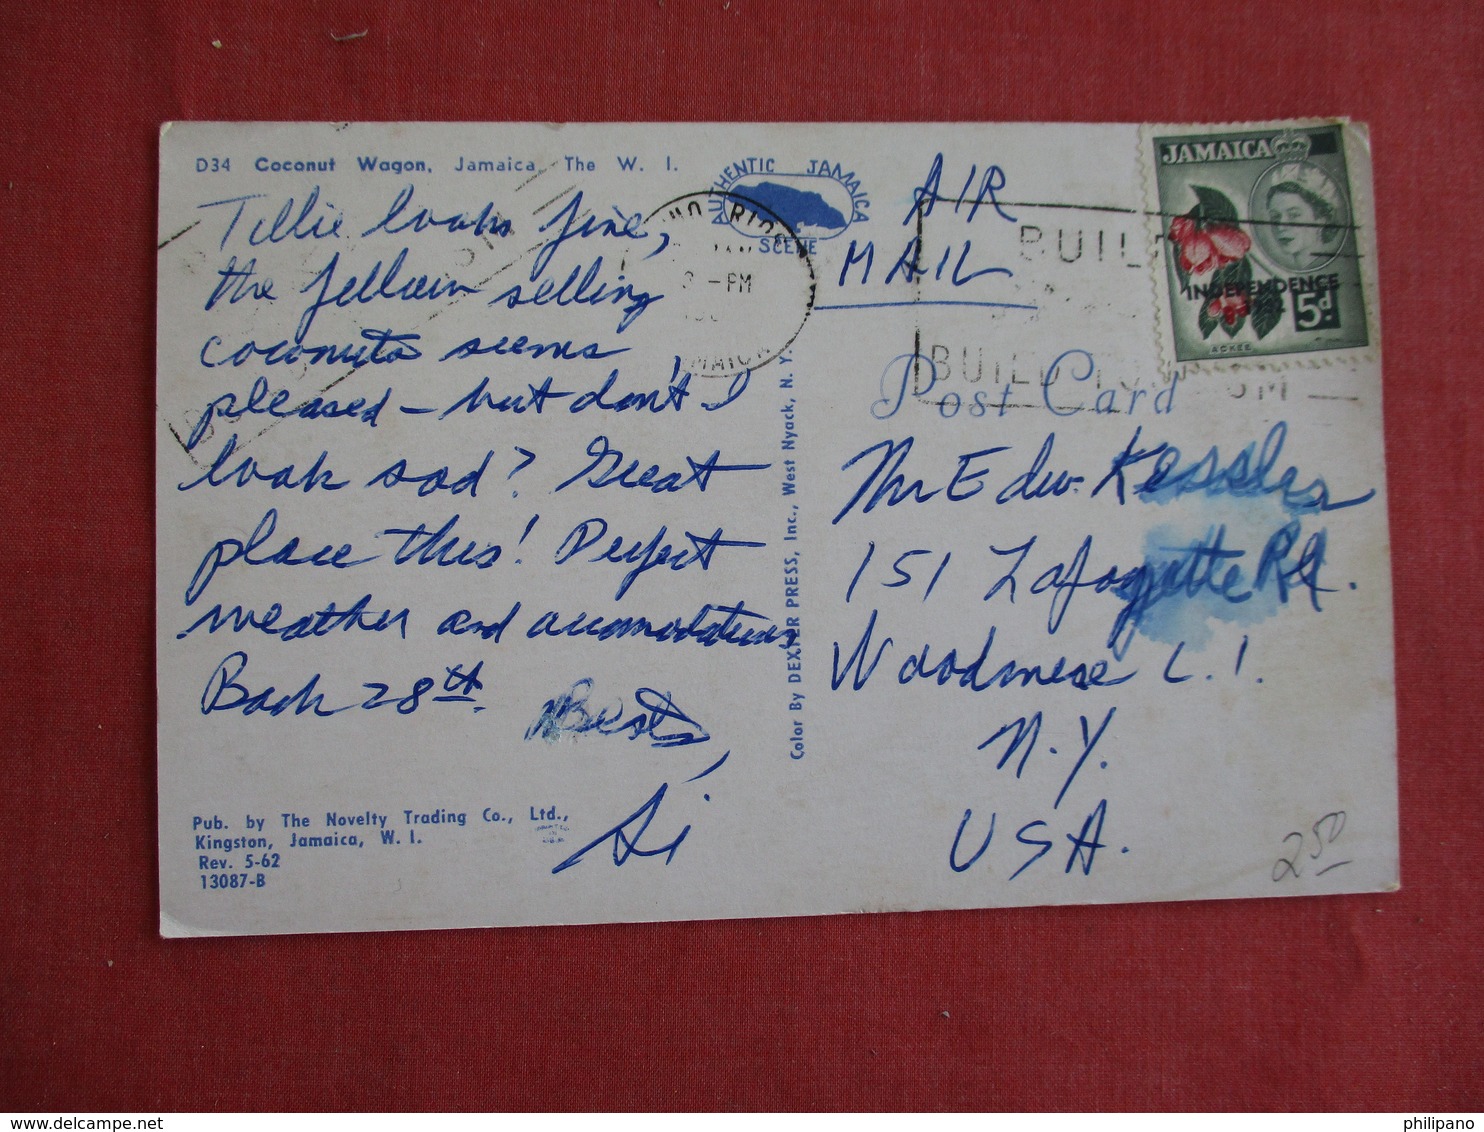 D34 Coconut Wagon, Jamaica, The W. I.
AUTHENTIC JAMAICA
SCENE
Tillie looks fine,
the fellow selling
coconuts seems
pleased - but don't I
look sad? Great
place this! Perfect
weather and accomodations
Back 28th.
Best,
Si
Pub. by The Novelty Trading Co., Ltd.,
Kingston, Jamaica, W. I.
Rev. 5-62
13087-B
Color By DEXTER PRESS, Inc., West Nyack, N. Y.
AIR
MAIL
RIOS
PM
BUIL
BUILD
JAMAICA
INDEPENDENCE
5d
ACKEE
Post Card
Mr Edw. Kessler
151 Lafayette Rd.
Woodmere L.I.
N.Y.
USA.
2 50
philipano